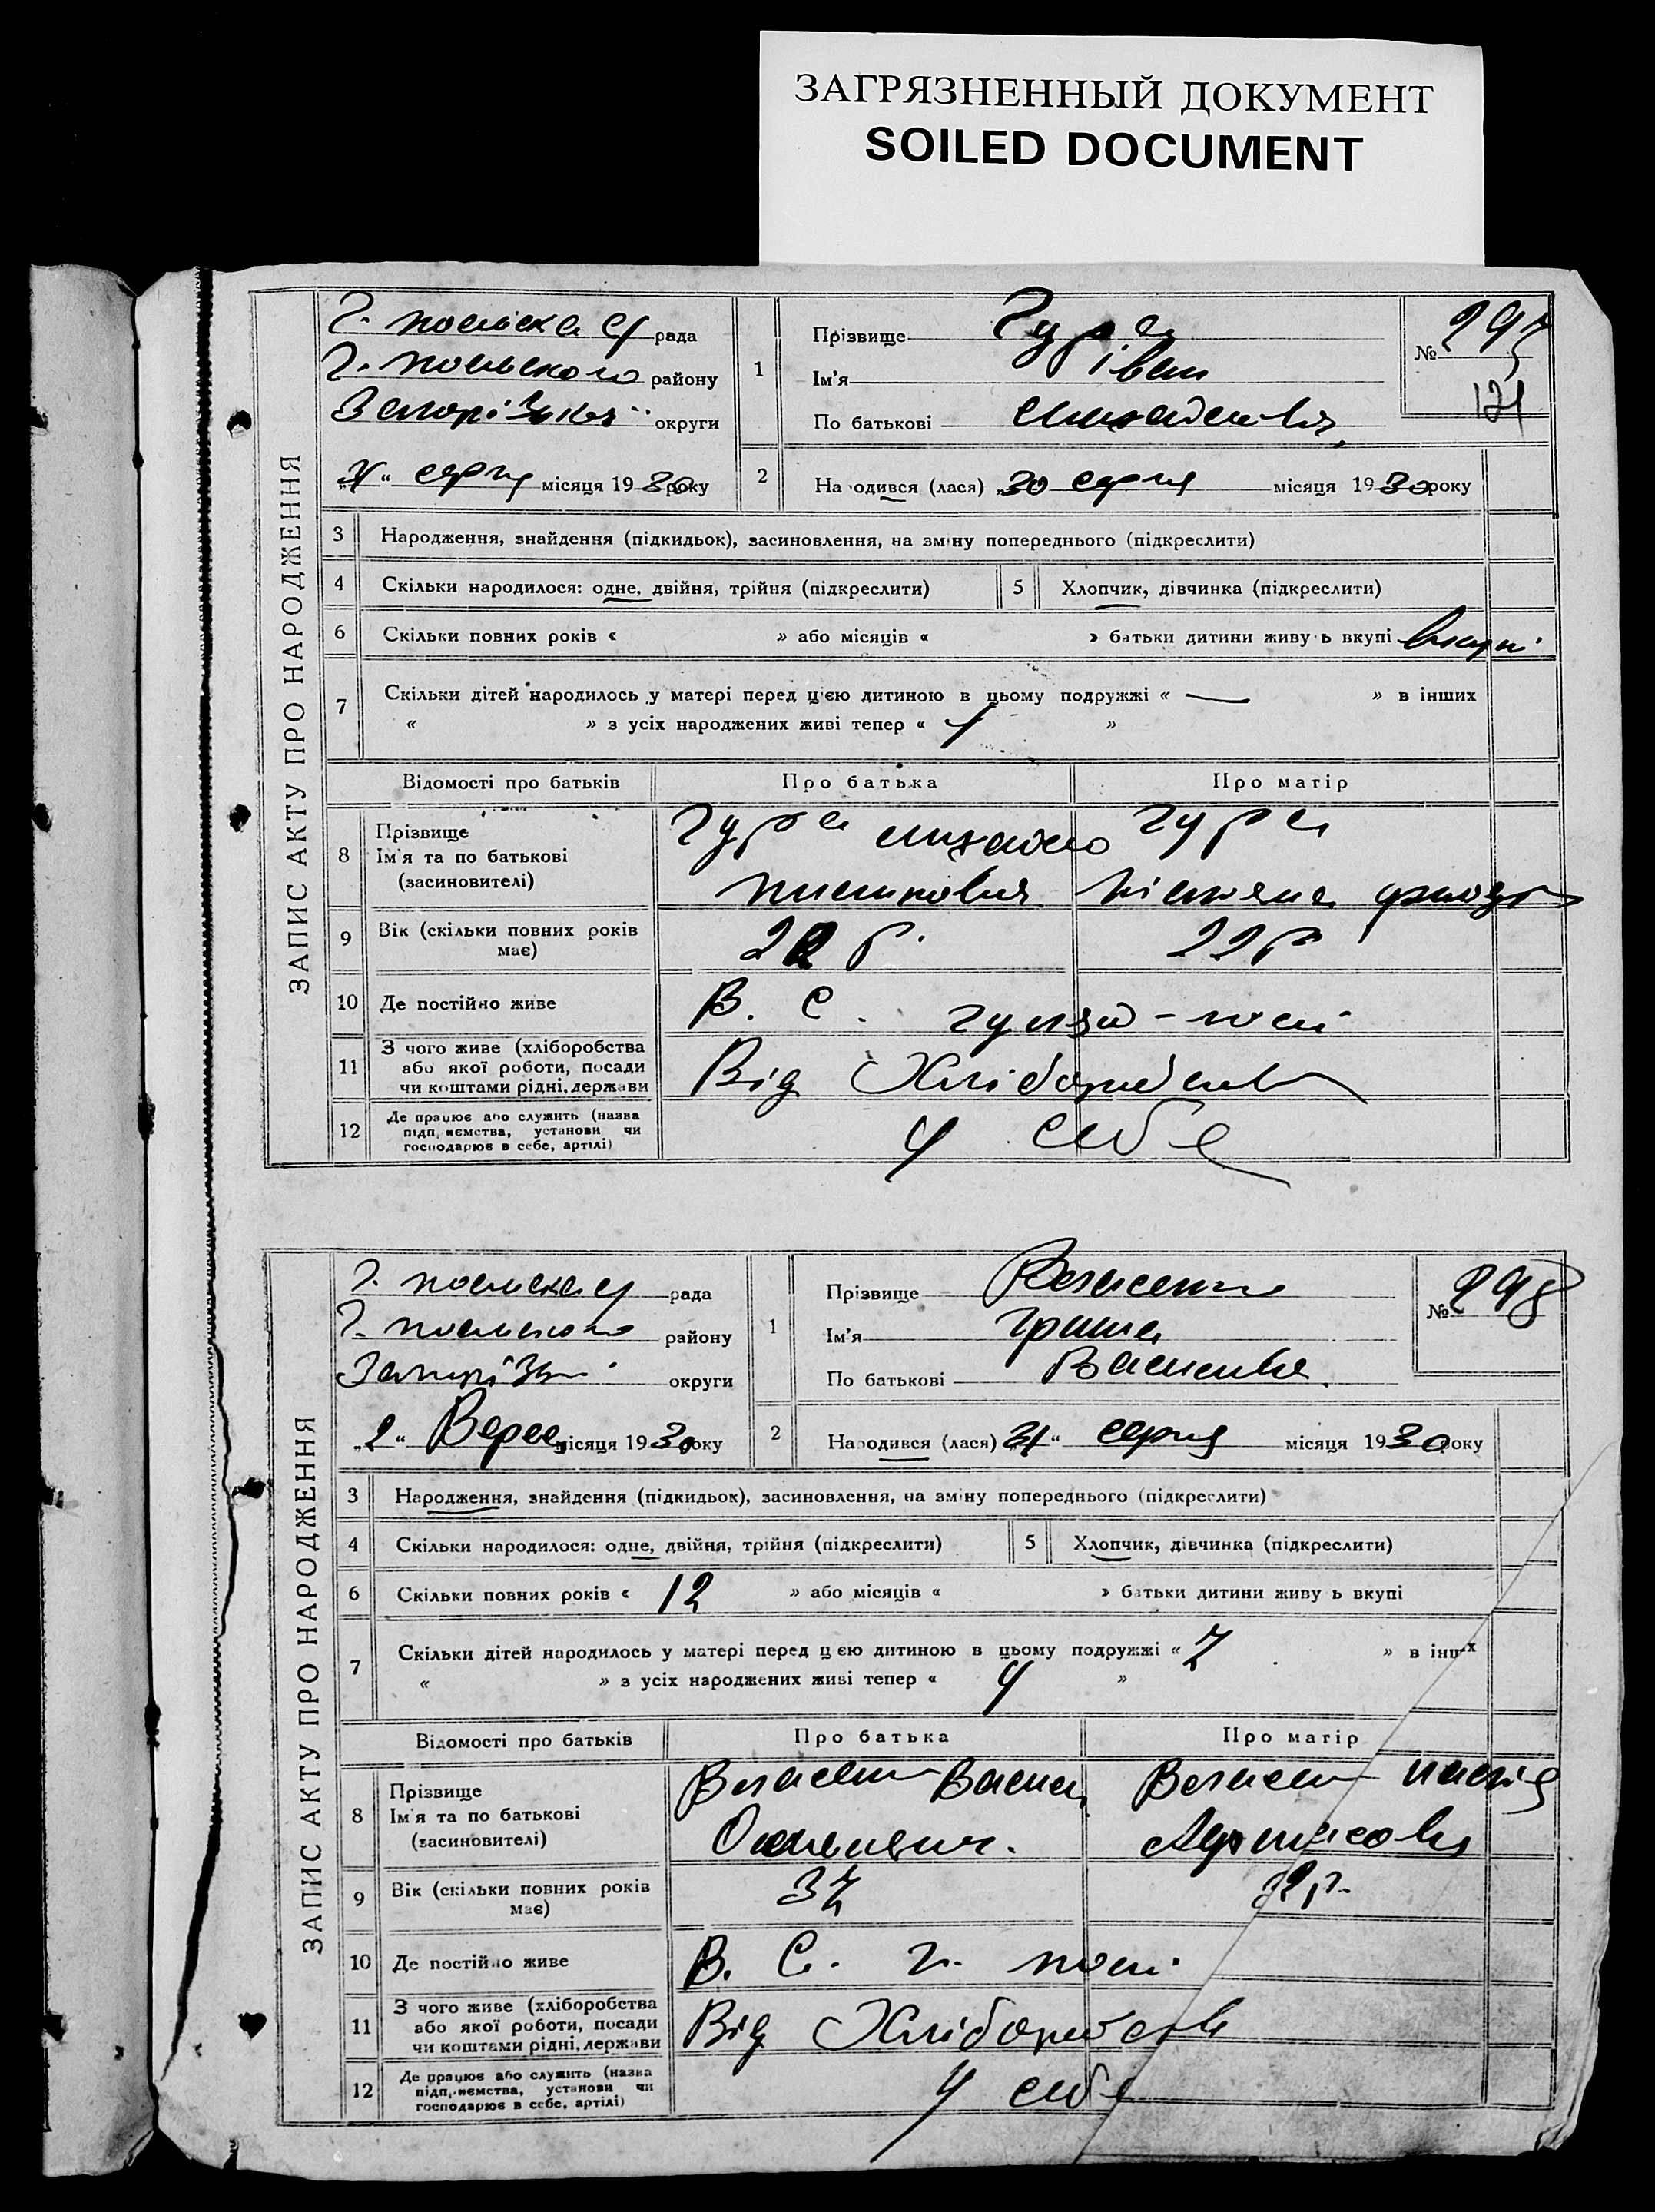 ЗАГРЯЗНЕННЫЙ ДОКУМЕНТ
SOILED DOCUMENT
ЗАПИС АКТУ ПРО НАРОДЖЕННЯ
рада
району
округи
серпня місяця 1930 року
1
Прізвище Гура
Ім'я Іван
По батькові
№
121
2
Народився (лася) „30 серпня місяця 1930 року
3 Народження, знайдення (підкидьок), засиновлення, на зміну попереднього (підкреслити)
4 Скільки народилося: одне, двійня, трійня (підкреслити) 5 Хлопчик, дівчинка (підкреслити)
6 Скільки повних років « » або місяців « » батьки дитини живуть вкупі вкупі
7 Скільки дітей народилось у матері перед цією дитиною в цьому подружжі « — » в інших
« » з усіх народжених живі тепер « »
Відомості про батьків Про батька Про матір
8 Прізвище
Ім'я та по батькові
(засиновителі)
Гура Михайло
Гура
9 Вік (скільки повних років має) 22 р. 22 р
10 Де постійно живе В. С. Гуляй-поле
11 З чого живе (хліборобства або якої роботи, посади чи коштами рідні, держави Від Хліборобства
12 Де працює або служить (назва підприємства, установи чи господарює в себе, артілі) У себе
ЗАПИС АКТУ ПРО НАРОДЖЕННЯ
рада
району
округи
„2“ Верес місяця 1930 року
1
Прізвище
Ім'я Гриша
По батькові
№ 298
2
Народився (лася) 31“ серпня місяця 1930 року
3 Народження, знайдення (підкидьок), засиновлення, на зміну попереднього (підкреслити)
4 Скільки народилося: одне, двійня, трійня (підкреслити) 5 Хлопчик, дівчинка (підкреслити)
6 Скільки повних років « 12 » або місяців « » батьки дитини живуть вкупі
7 Скільки дітей народилось у матері перед цією дитиною в цьому подружжі « 7 » в інших
« » з усіх народжених живі тепер « 4 »
Відомості про батьків Про батька Про матір
8 Прізвище
Ім'я та по батькові
(засиновителі)
9 Вік (скільки повних років має) 37 32 р.
10 Де постійно живе В. С. Г. поле
11 З чого живе (хліборобства або якої роботи, посади чи коштами рідні, держави Від Хліборобства
12 Де працює або служить (назва підприємства, установи чи господарює в себе, артілі) У себе